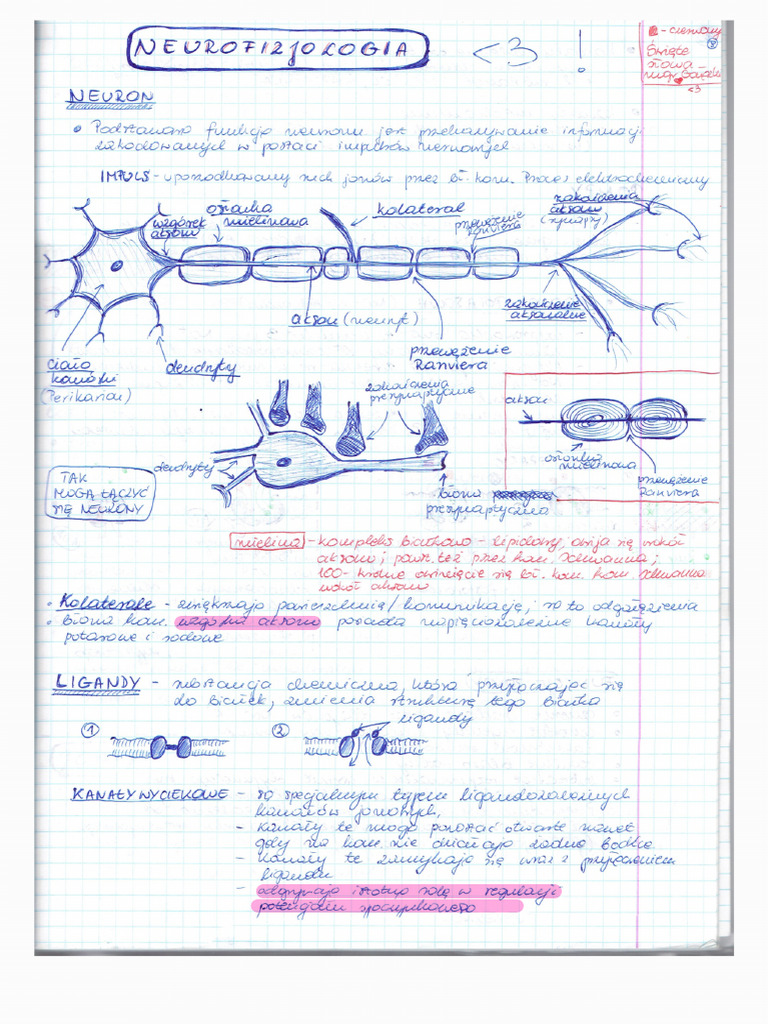 NEUROFIZJOLOGIA <3 !
- czerwony
Święte
słowa
mgr
<3
NEURON
• Podstawową funkcją neuronu jest przekazywanie informacji
zakodowanych w postaci impulsów nerwowych
IMPULS - uporządkowany ruch jonów przez bł. kom. Proces elektrochemiczny
wzgórek
aksonu
osłonka
mielinowa
kolaterał
przewężenie
Ranviera
zakończenia
aksonu
(synapsy)
akson (neuryt)
zakończenie
aksonalne
przewężenie
Ranviera
ciało
komórki
(Perikarion)
dendryty
zakończenia
presynaptyczne
akson
osłonka
mielinowa
przewężenie
Ranviera
dendryty
błona
presynaptyczna
TAK
MOGĄ ŁĄCZYĆ
SIĘ NEURONY
mielina - kompleks białkowo - lipidowy, owija się wokół
aksonu; powst. też przez kom. Schwanna;
100-krotne owinięcie się bł. kom. kom. Schwanna
wokół aksonu
• Kolaterale - zwiększają połączenia/komunikację, są to odgałęzienia
• błona kom. wzgórka aksonu posiada napięciozależne kanały
potasowe i sodowe
LIGANDY - substancja chemiczna, która przyłączając się
do białek, zmienia strukturę tego białka
ligandy
1 2
KANAŁY WYCIEKOWE - są specjalnym typem ligandozależnych
kanałów jonowych,
- kanały te mogą pozostać otwarte nawet
gdy na kom. nie działają żadne bodźce
- kanały te zamykają się wraz z przyłączeniem
ligandu
- odgrywają istotną rolę w regulacji
potencjału spoczynkowego